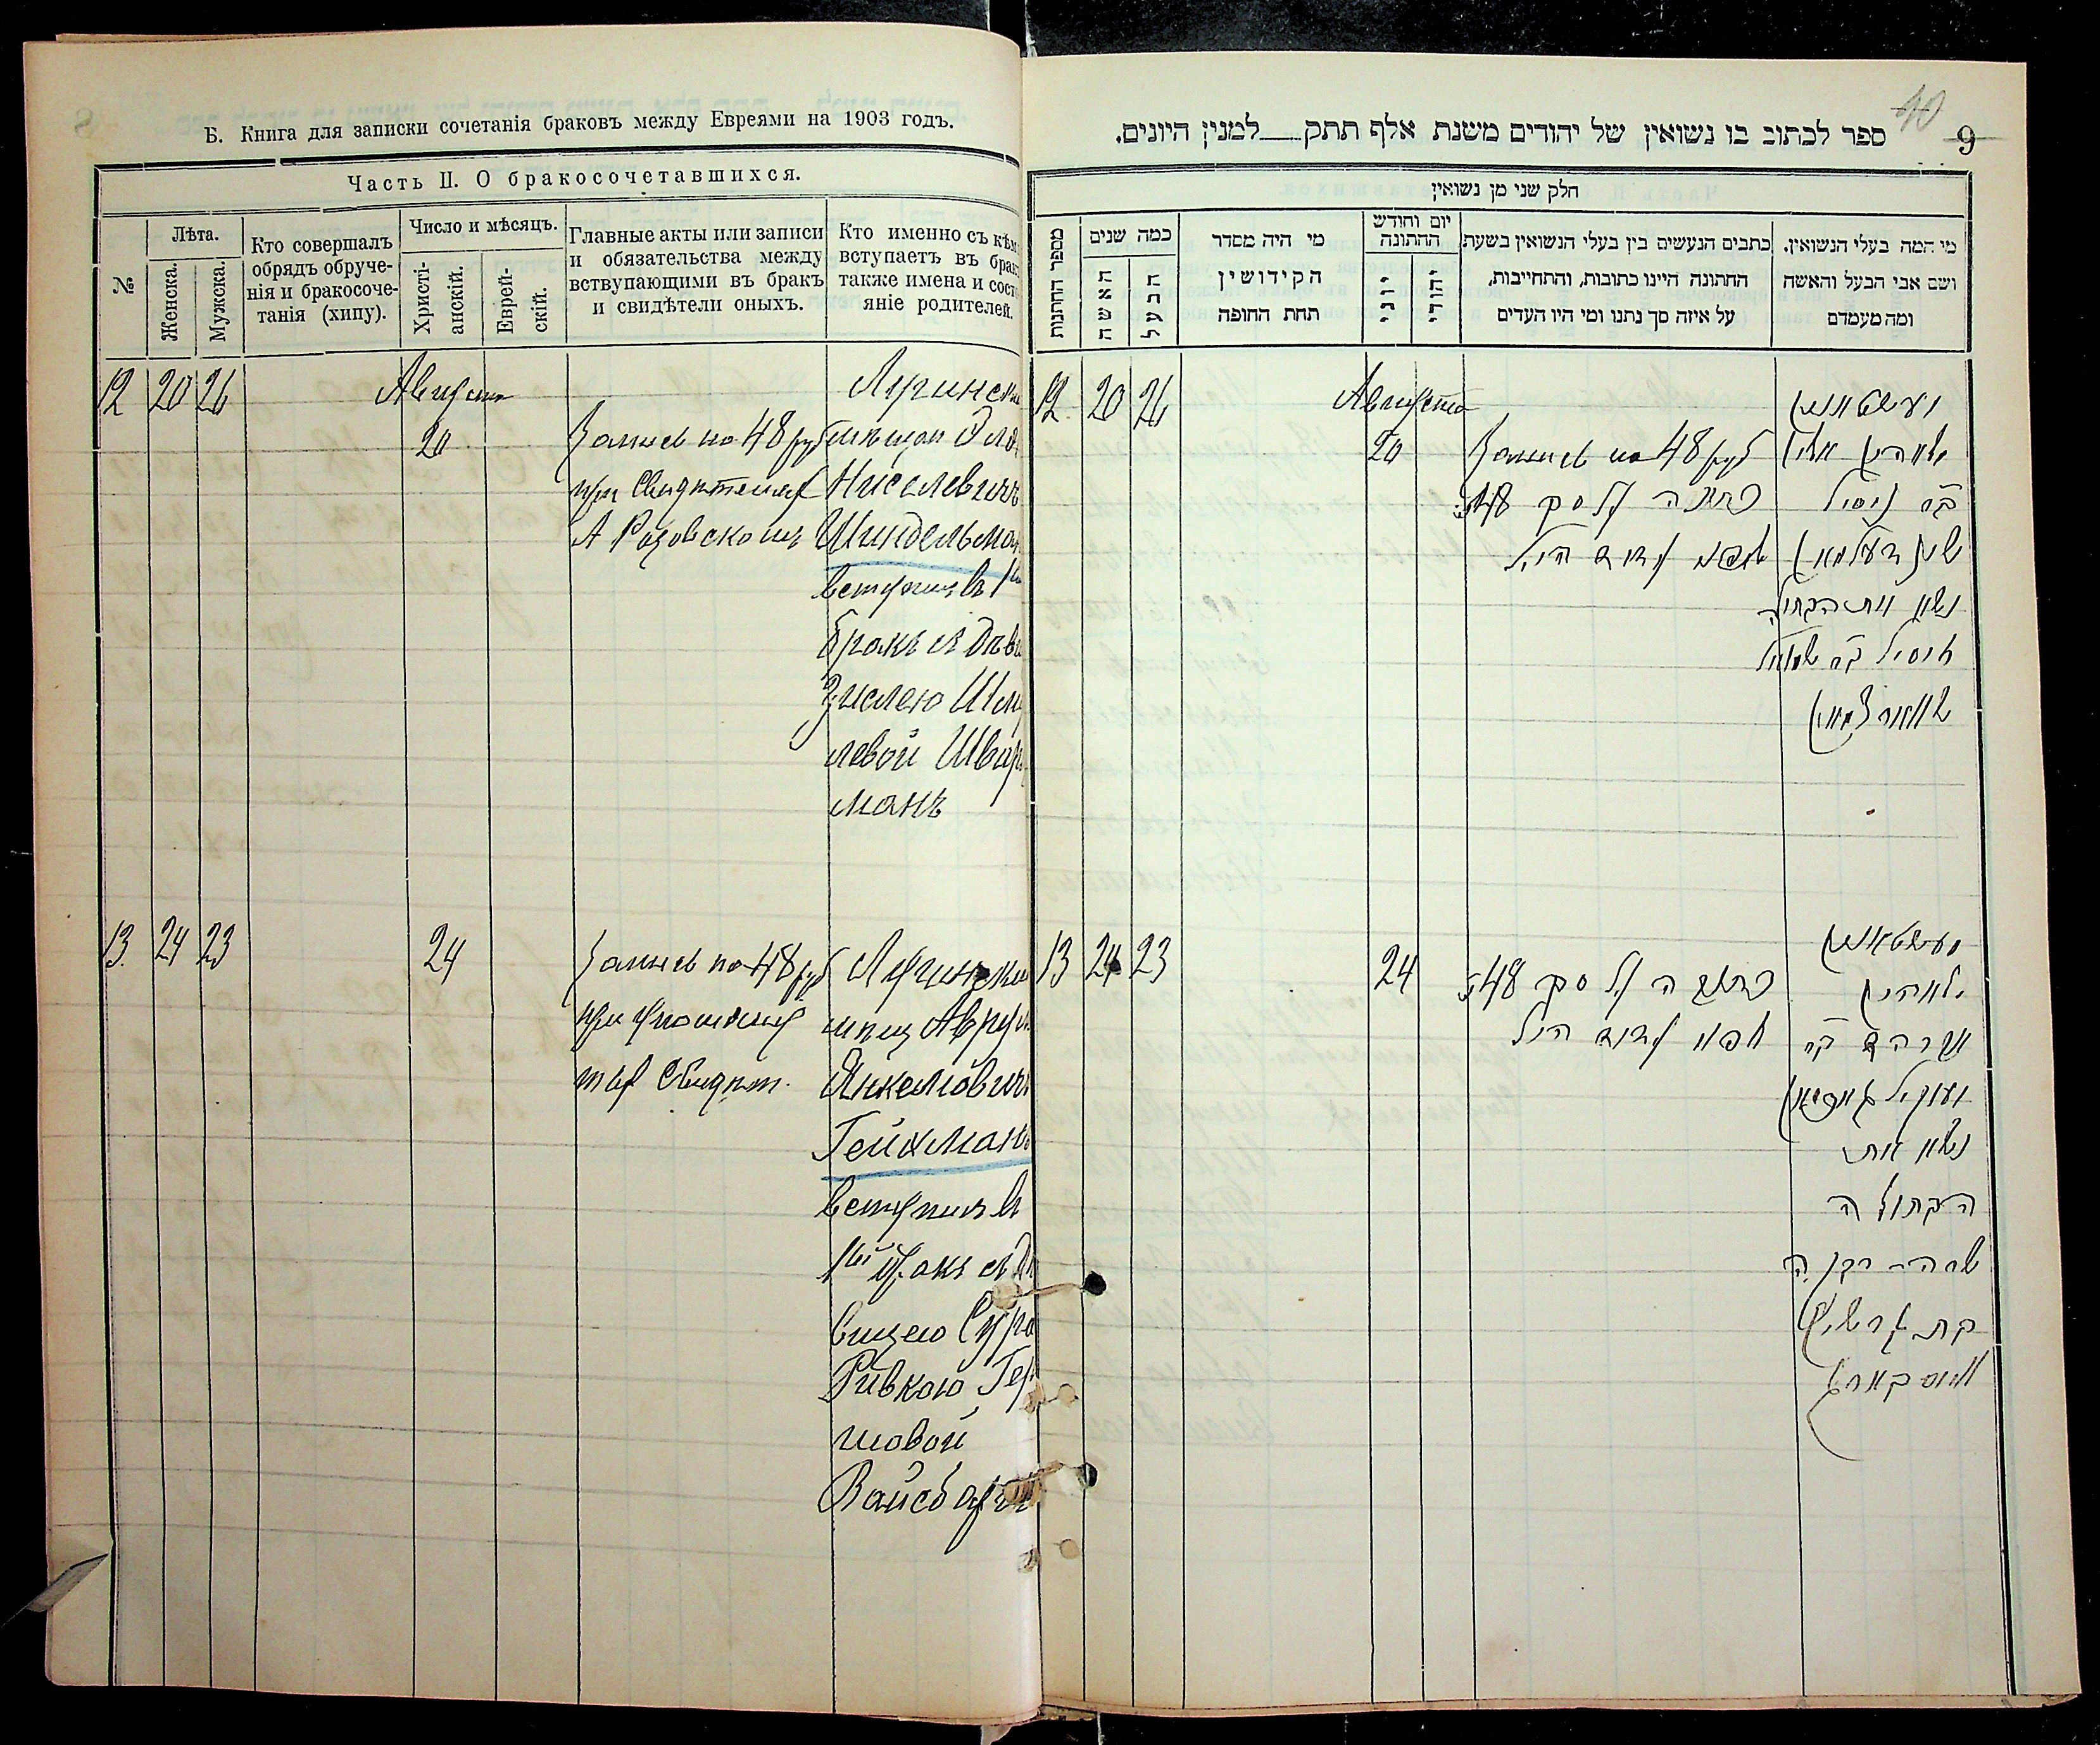 Б. Книга для записки сочетанія браковъ между Евреями на 1903 годъ.
Часть II. О бракосочетавшихся.
№
Лѣта.
Женска.
Мужска.
Кто совершалъ
обрядъ обруче-
нія и бракосоче-
танія (хипу).
Число и мѣсяцъ.
Христі-
анскій.
Еврей-
скій.
Главные акты или записи
и обязательства между
вствупающими въ бракъ
и свидѣтели оныхъ.
Кто именно съ кѣм
вступаетъ въ брак
также имена и сост
яніе родителей.
12 20 26
Августа
20
Запись на 48 руб
при свидѣтеляхъ
А Розовскомъ
Лугинск
мѣщан Эло
Ниселевичъ
Шиндельман
вступилъ в 1й
бракъ съ дѣви
Зислею Шму
левой Швар
манъ
13. 24 23
24
Запись на 48 руб
при
тыхъ свидѣт.
Лугински
мѣщ Аврум
Янкелiовичъ
Гейхманъ
вступилъ въ
1ый бракъ съ дѣ
вицею Сура
Ривкою Гер
шовой
Вайсбаргъ
40
9
ספר לכתוב בו נשואין של יהודים משנת אלף תתק למנין היונים.
חלק שני מן נשואין
מספר החתונות
כמה שנים
האשה
הבעל
מי היה מסדר
הקידושין
תחת החופה
יום וחודש
החתונה
יוני
יהודי
כתבים הנעשים בין בעלי הנשואין בשעת
החתונה היינו כתובות, והתחייבות,
על איזה סך נתנו ומי היו העדים
מי המה בעלי הנשואין.
ושם אבי הבעל והאשה
ומה מעמדם
12. 20 26
Августа
20
Запись на 48 руб
כתובה על סך 48
בפני עדים הנ״ל
ב״ר ניסיל
נשא את הבתולה
זיסיל ב״ר שמואל
13 24 23
24
כתובה על סך 48
בפני עדים הנ״ל
אברהם ב״ר
נשא את
הבתולה
שרה רבקה
בת גרשון
ווייסבארג